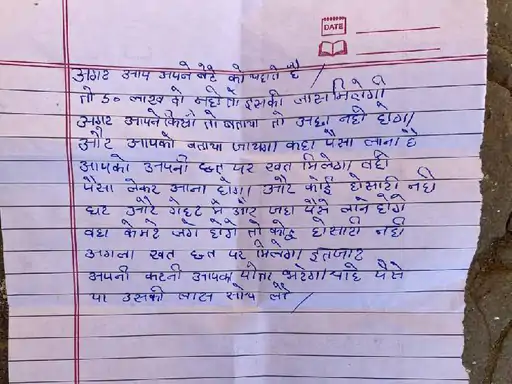 DATE
अगर आप अपने बेटे को चहाते है
तो 50 लाख दो नही तो इसकी लास मिलेगी
अगर आपने किसी तो बताया तो अछा नही होगा
और आपको बताया जायगा कहा पैसा लाना है
आपको अपनी छत पर खत मिलेगा वही
पैसा लेकर आना होगा और कोई होसारी नही
घर और गेहट मे और जहा पैसे लाने होगे
वहा केमरे लगे होगे तो कोइ होसारी नही
अगला खत छत पर मिलेगा इतजार
अपनी करनी आपका पोता भरेगा चाहे पैसे
या उसकी लास सोच लो